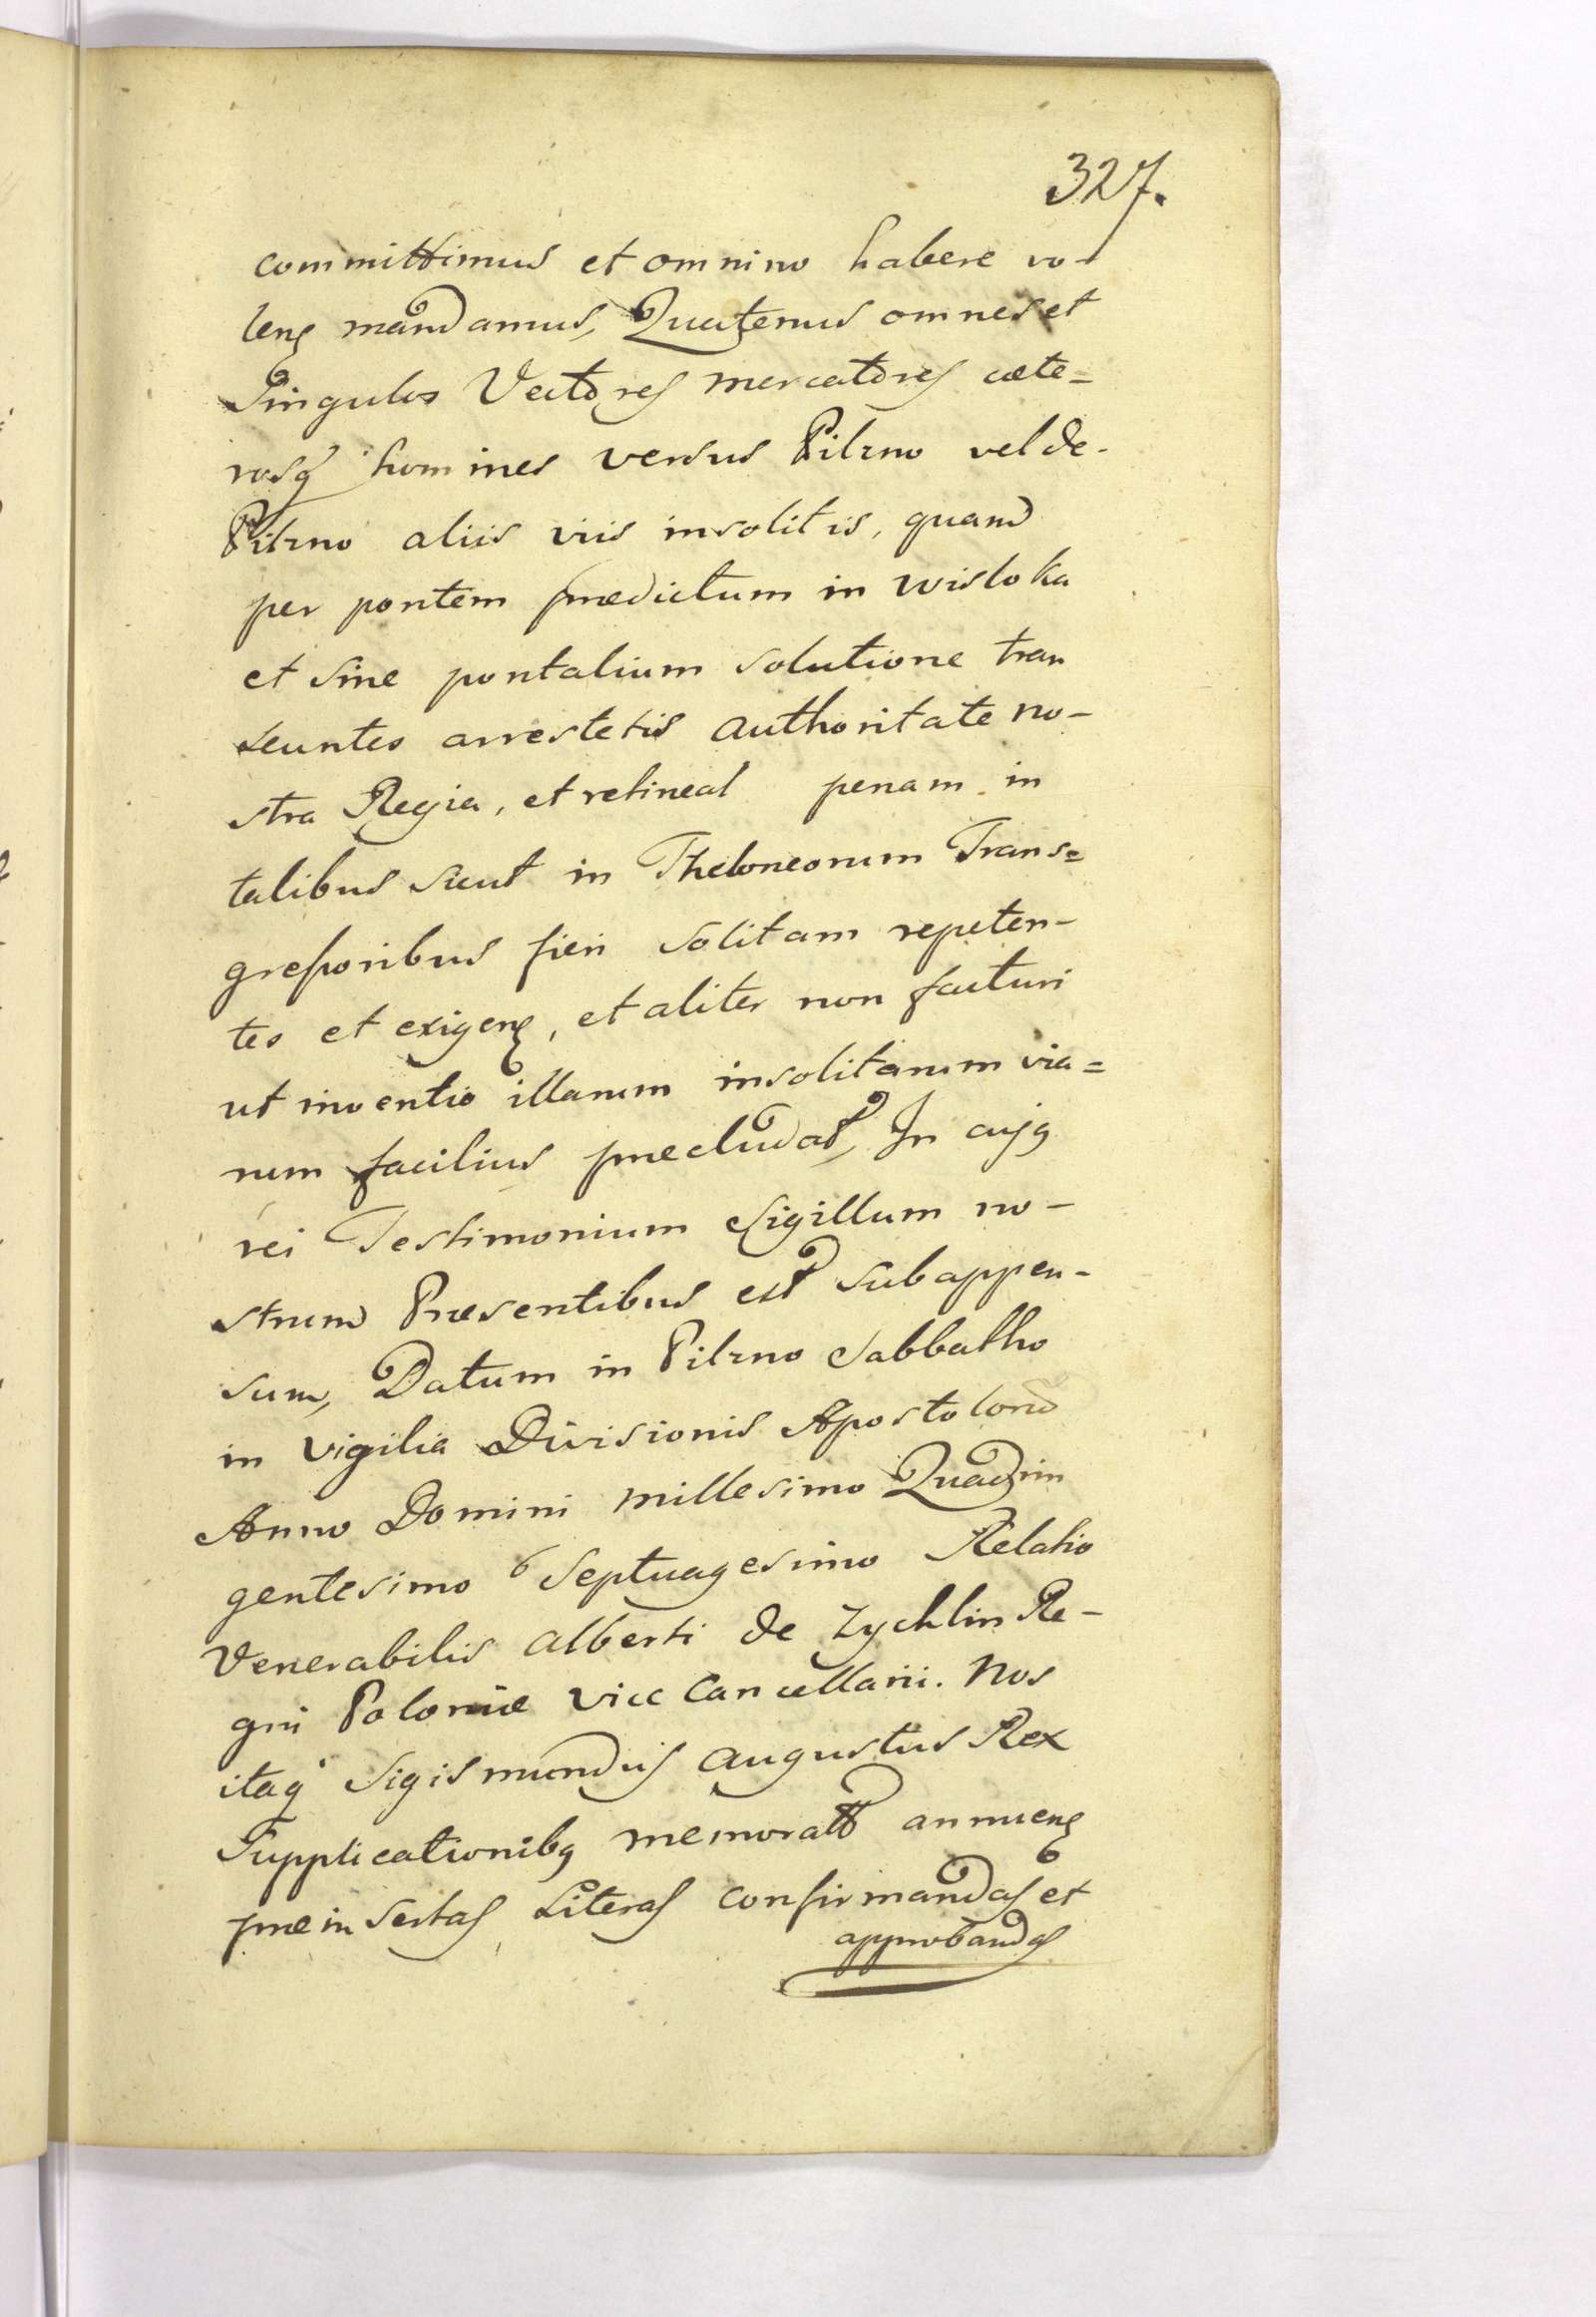 327.
committimus et omnino habere vo-
lens mandamus, Quatenus omnes et
Singulos Vectores mercatores cæte=
rosq homines versus Pilzno vel de-
Pilzno aliis viis insolitis, quam
per pontem prædictum in wisloka
et sine pontalium solutione tran
seuntes arrestetis authoritate no-
stra Regia, et retineat penam in
talibus sicut in Theloneorum Trans=
gressoribus fieri solitam repeten-
tes et exigens, et aliter non facturi
ut inventio illarum insolitarum via=
rum facilius præcludat, In cujq
rei Testimonium Sigillum no-
strum Præsentibus est subappen-
sum, Datum in Pilzno Sabbatho
in vigilia Divisionis Apostolorum
Anno Domini millesimo Quadrin
gentesimo Septuagesimo Relatio
Venerabilis Alberti de Zychlin Re-
gni Poloniæ vice Cancellarii. Nos
itaq Sigismundus Augustus Rex
Supplicationibq memorat annuens
præinsertas Literas confirmandas et
approbandas